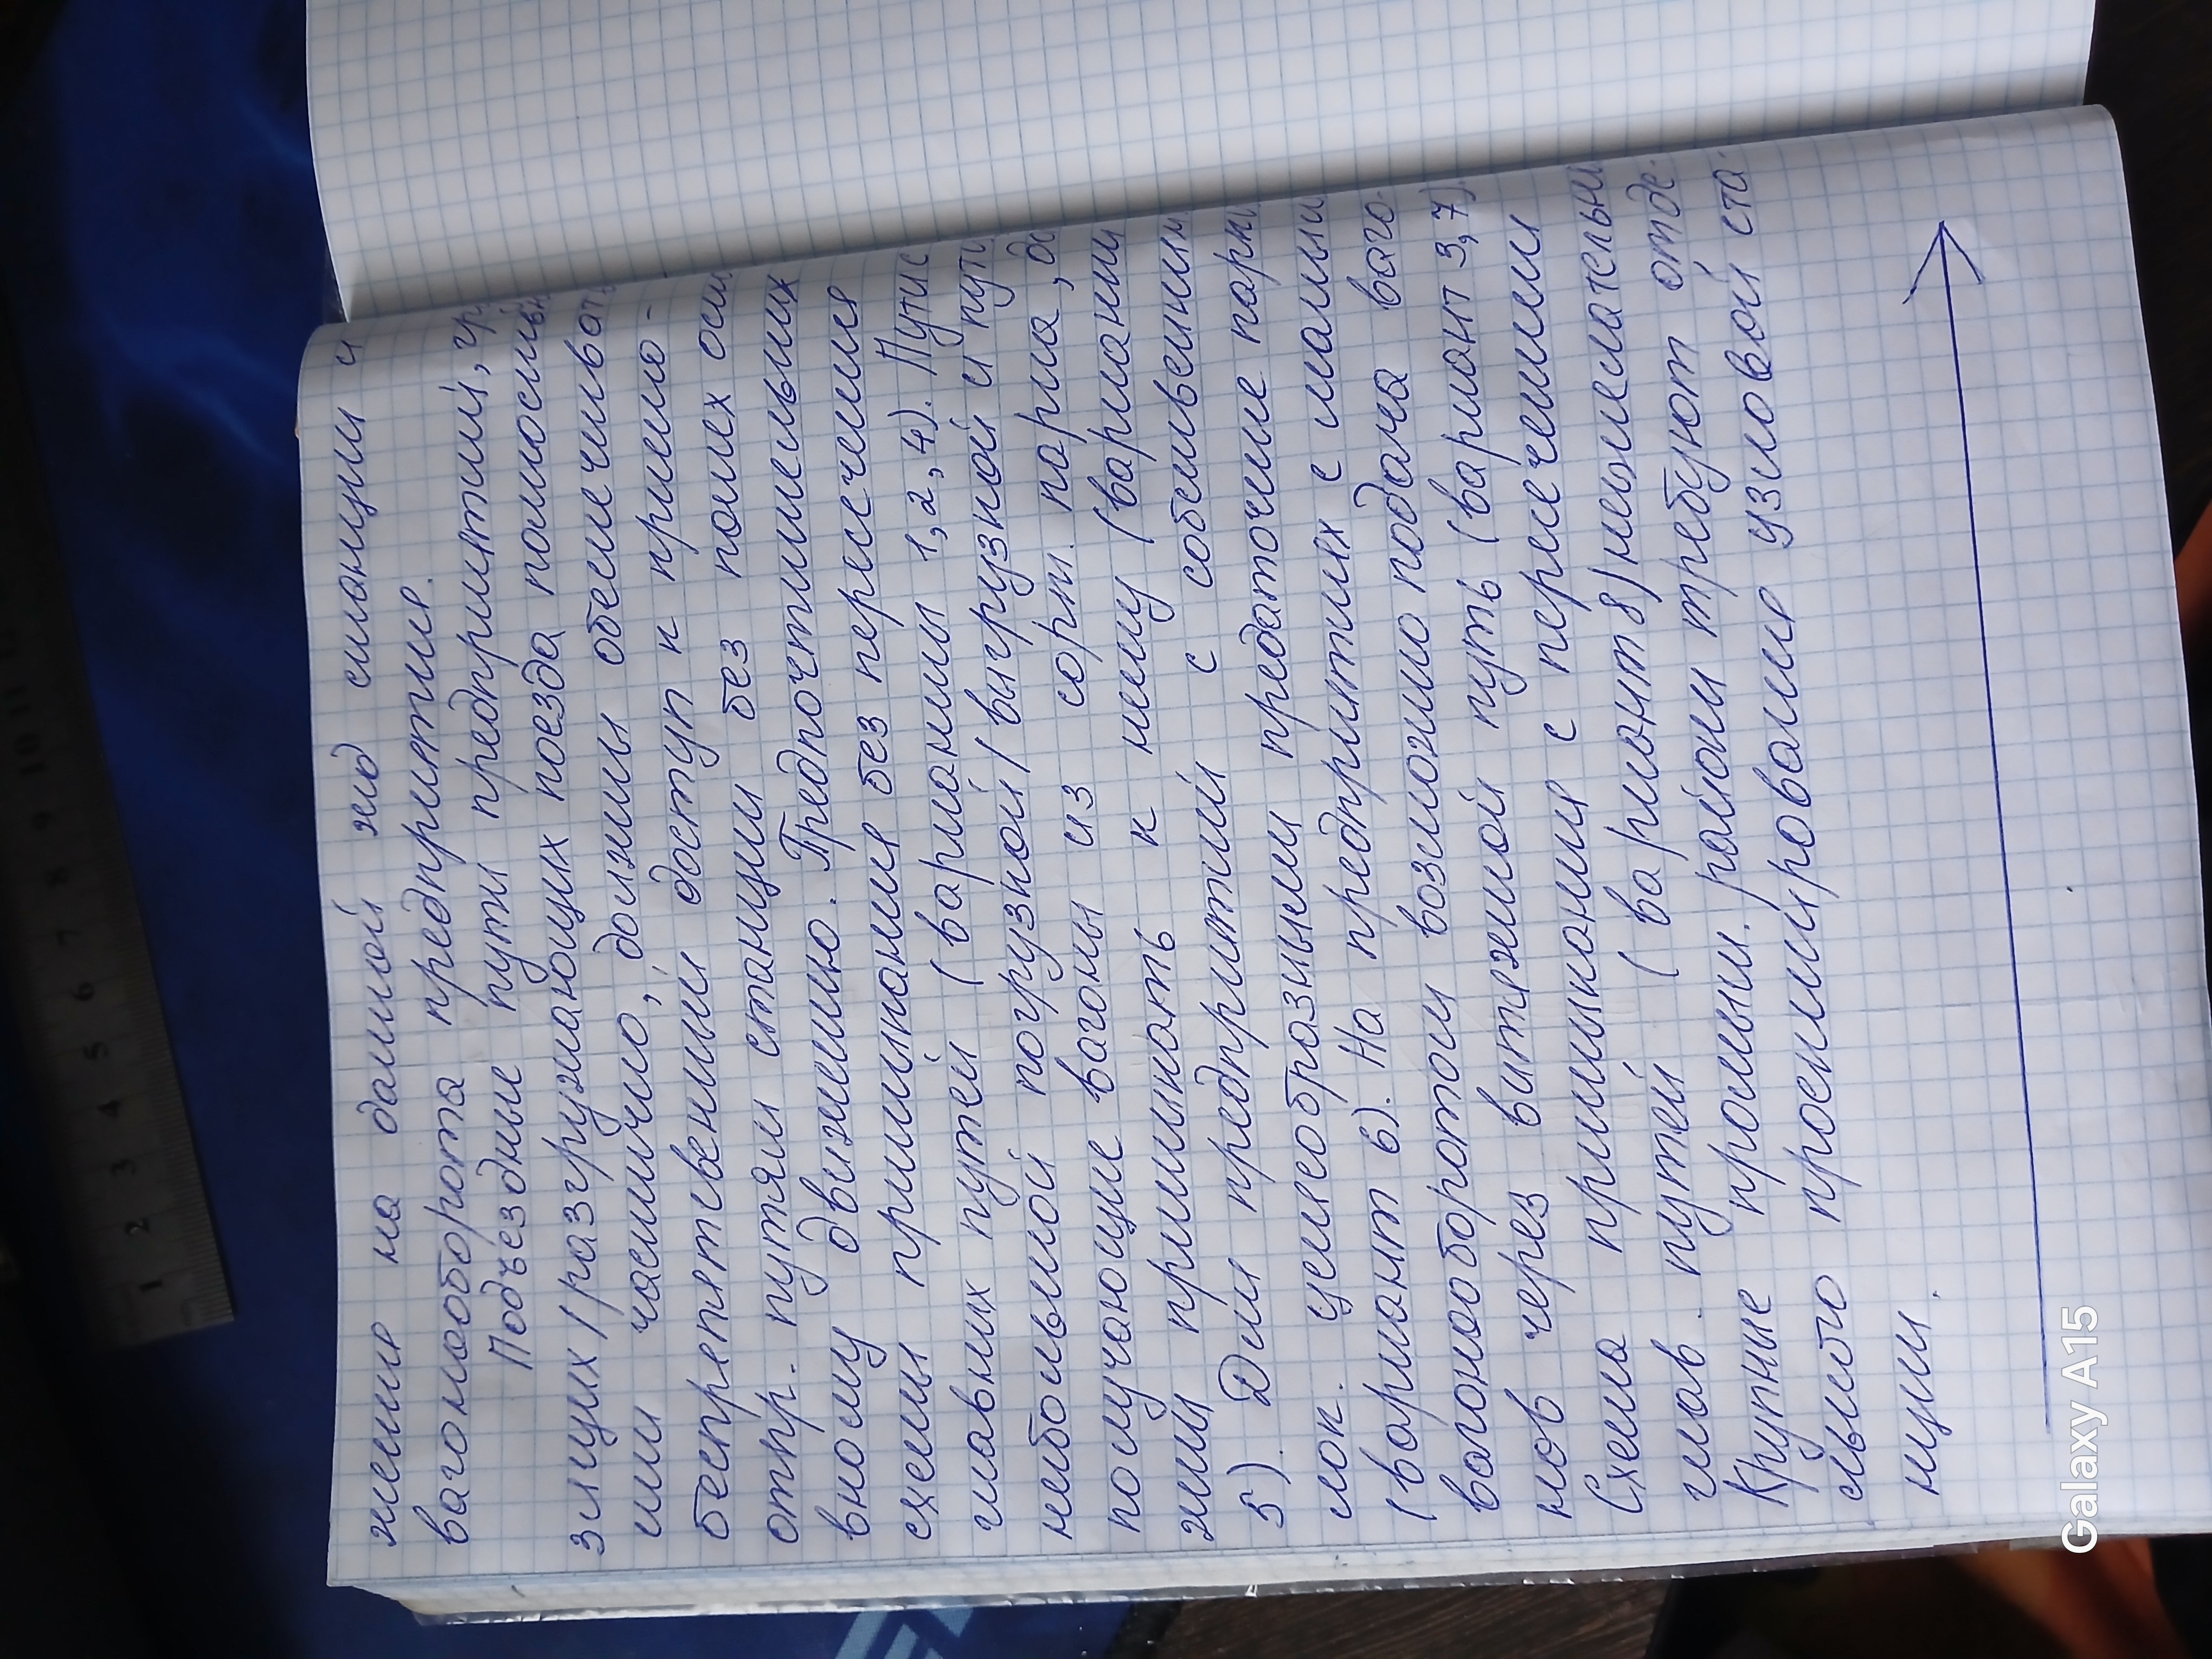 жение на данной жд станции и
вагонооборота предприятие.
Подъездные пути предприятий, гр
зящих / разгружающих поезда полностью
или частично, должны обеспечивать
беспрепятственный доступ к приемо-
отпр. путям станции без помех осн
вному движению. Предпочтительных
схемы примыкание без пересечения
главных путей (варианты 1, 2, 4). Пути с
небольшой погрузкой / выгрузкой и пути
получающие вагоны из сорт. парка, до
жны примыкать к нему (варианты
5). Для предприятий с собственными
лок. целесообразными предаточные парки
(вариант 6). На предприятиях с малым
вагонооборотом возможно подача ваго-
нов через вытяжной путь (вариант 3, 7)
Схема примыкания с пересечением
глав. путей (вариант 8) нежелательны
Крупные промыш. районы требуют отде-
льного проектирование узловой ста
нции.
Galaxy A15
1 2 3 4 5 6 7 8 9 10 11 12